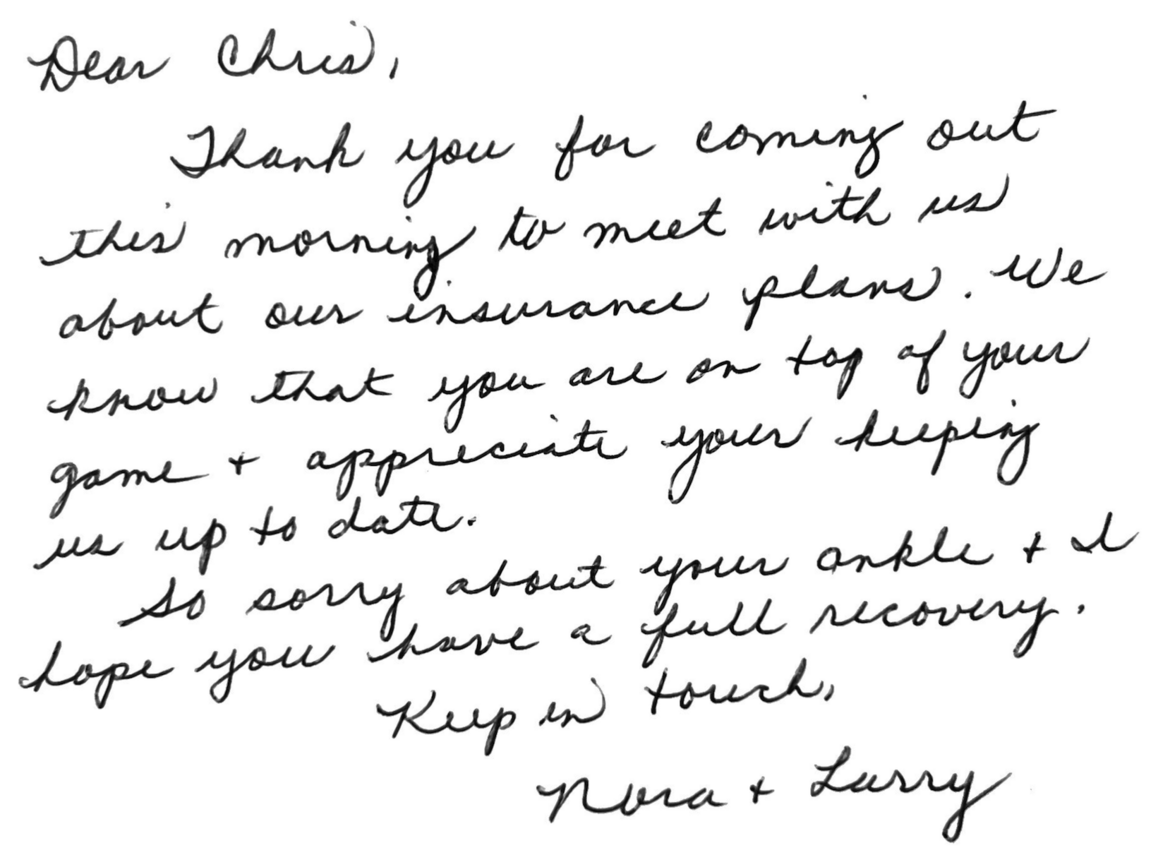 Dear Chris,
Thank you for coming out
this morning to meet with us
about our insurance plans. We
know that you are on top of your
game + appreciate your keeping
us up to date.
So sorry about your ankle + I
hope you have a full recovery.
Keep in touch,
Nora + Larry